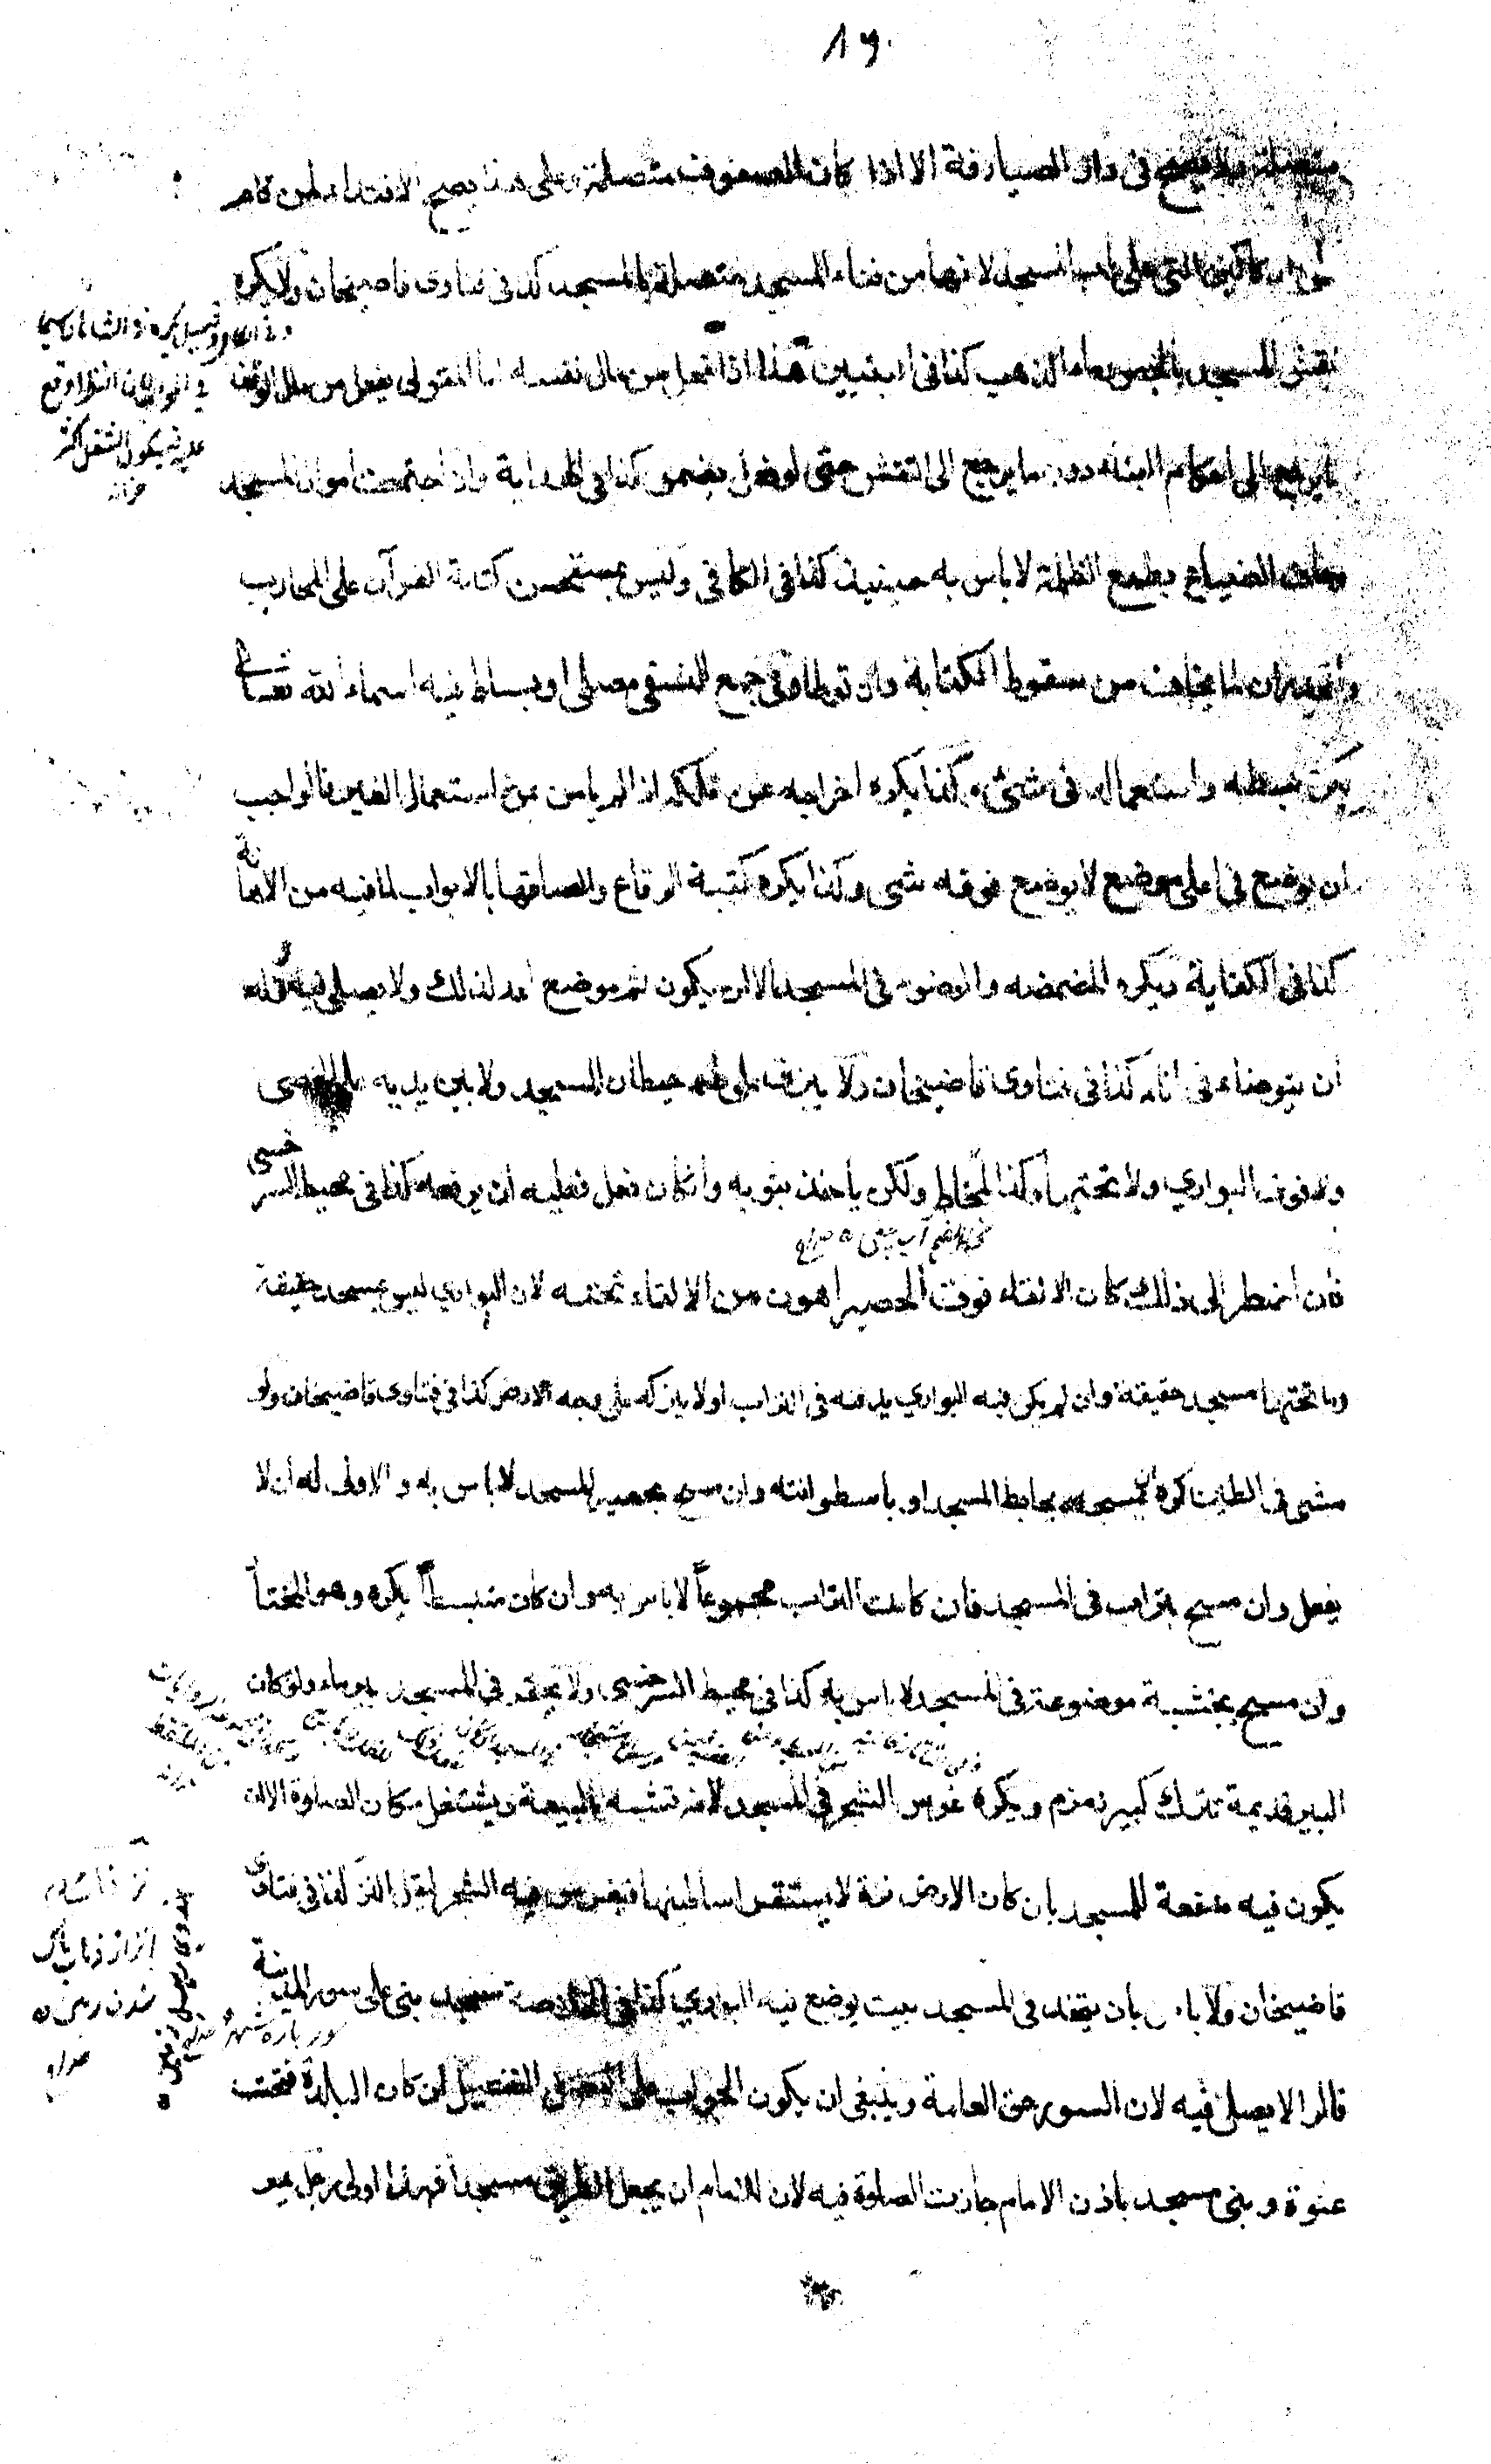 ١٩٠
متصلة ولا يصح في دار الصيارفة الا اذا كان الصفوف متصلة وعلى هذا يصح الاقتداء لمن قام
على الدكاكين التى على باب المسجد لانها من فناء المسجد متصلة بالمسجد كذا فى فتاوى قاضيخان ولا يكره
نقش المسجد بالجص وماء الذهب كذا فى التبيين هذا اذا فعل من مال نفسه اما المتولى يفعل من مال الوقف
ما يرجع الى احكام البناء دون ما يرجع الى النقش حتى لو فعل يضمن كذا في الهداية وان اجتمعت اموال المسجد
وخاف الضياع بطمع الظلمة لا باس به حينئذ كذا فى الكافى وليس بمستحسن كتابة القرآن على المحاريب
والجدران لما يخاف من سقوط الكتابة وان توطأ وفى جمع النسفى مصلى او بساط فيه اسماء الله تعالى
يكره بسطه واستعماله فى شئ وكذا يكره اخراجه عن ملكه اذا لم يامن من استعمال الغير فالواجب
ان يوضع فى اعلى موضع لا يوضع فوقه شى وكذا يكره كتبة الرقاع والصاقها بالابواب لما فيه من الاهانة
كذا فى الكفاية ويكره المضمضة والوضوء فى المسجد الا ان يكون ثم موضع اعد لذلك ولا يصلى فيه وله
ان يتوضاء فى اناء كذا فى فتاوى قاضيخان ولا يبزق على حيطان المسجد ولا بين يديه على الحصى
ولا فوق البوارى ولا تحتها وكذا المخاط ولكن ياخذ بثوبه وان كان فعل فعليه ان يرفعه كذا فى محيط السرخسى
فان اضطر الى ذلك كان الالقاء فوق الحصير اهون من الالقاء تحته لان البوارى ليس بمسجد حقيقة
وما تحتها مسجد حقيقة وان لم يكن فيه البوارى يدفنه فى التراب ولا يتركه على وجه الارض كذا فى فتاوى قاضيخان ولو
مشى فى الطين كره ان يمسحه بحايط المسجد او باسطوانته وان مسح بحصير المسجد لا باس به والاولى له ان لا
يفعل وان مسح بتراب فى المسجد فان كانت التراب مجموعاً لا باس به وان كان منبسطاً يكره وهو المختار
وان مسح بخشبة موضوعة فى المسجد لا باس به كذا فى محيط السرخسى ولا يحفر فى المسجد بير ماء ولو كان
البير قديمة تترك كبير زمزم ويكره غرس الشجر فى المسجد لانه تشبه بالبيعة ويشتغل مكان الصلوة الا ان
يكون فيه منفعة للمسجد بان كان الارض نزة لا يستقر اساطينها فيغرس فيه الشجر ليقل النز كذا فى فتاوى
قاضيخان ولا باس بان يتخذ فى المسجد بيت يوضع فيه البوارى كذا فى الخلاصة مسجد بنى على سور المدينة
قالوا لا يصلى فيه لان السور حق العامة وينبغى ان يكون الجواب على التفصيل ان كان البلدة فتحت
عنوة وبنى مسجد باذن الامام جازت الصلوة فيه لان للامام ان يجعل الطريق مسجداً فهذا اولى رجل يمر